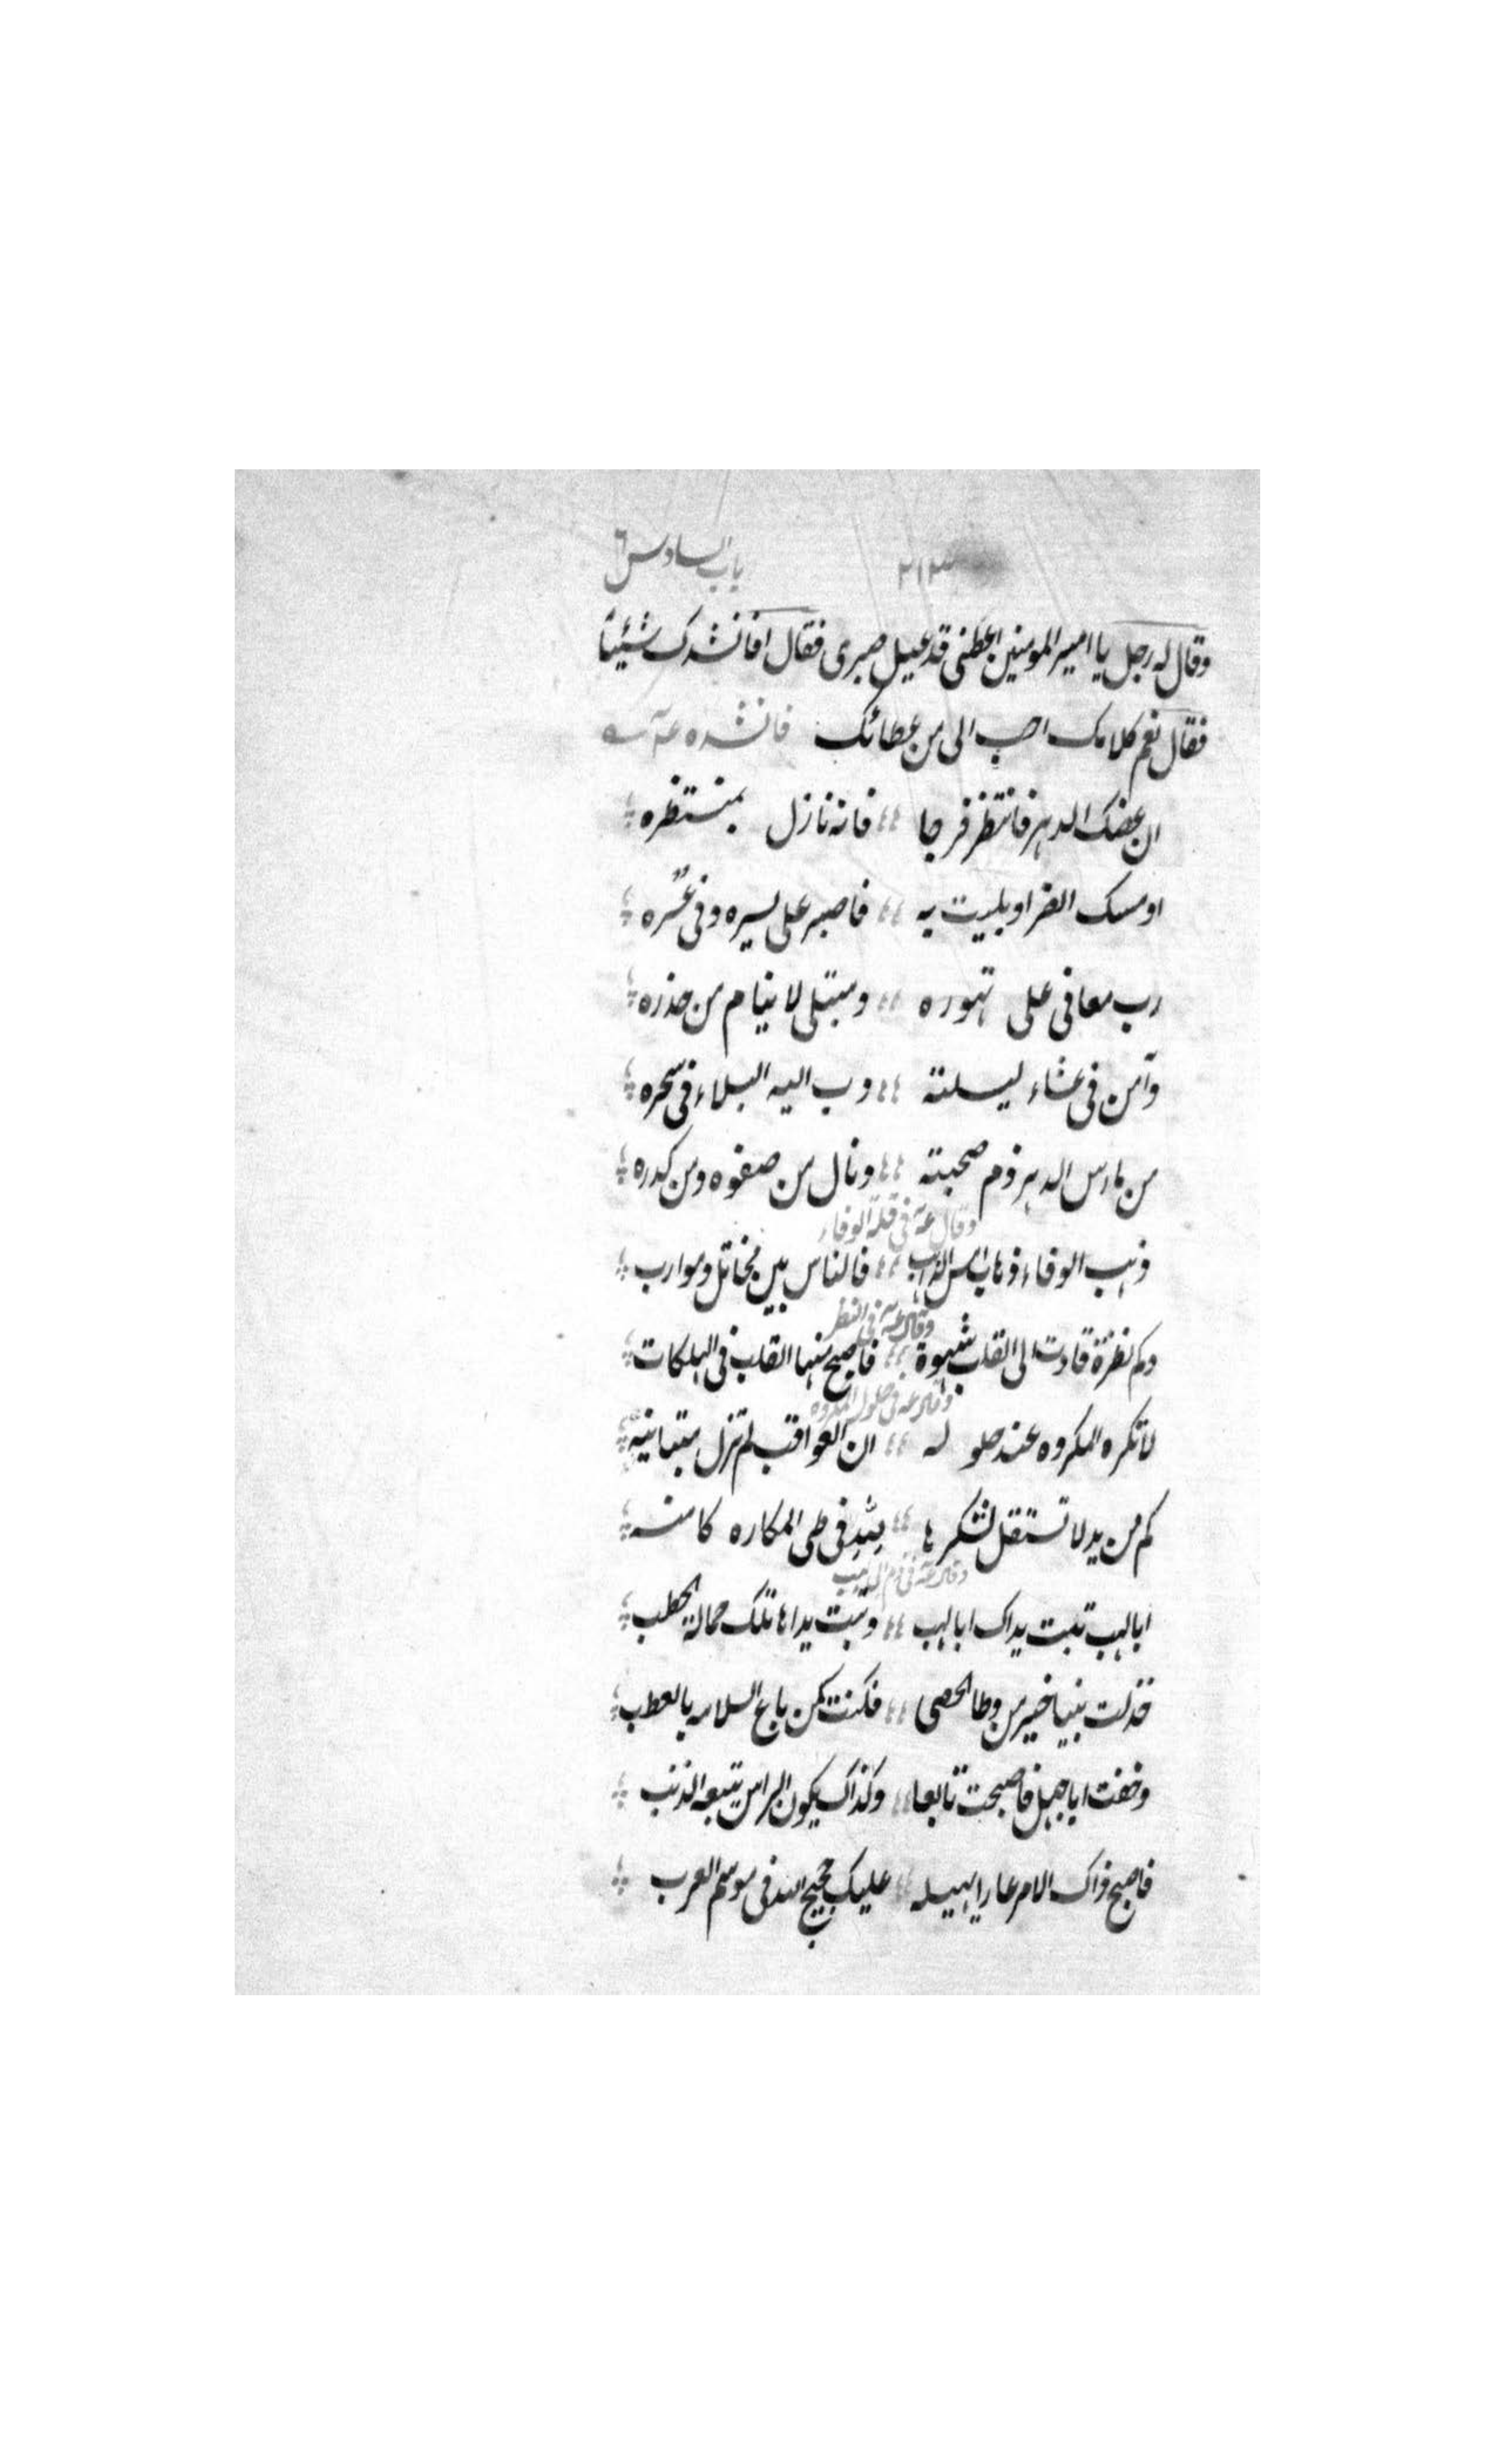 ٢١٣ باب السادس ٦
وقال له رجل يا امير المومنين اعطنى قد عيل صبرى فقال افانشدك شيئا
فقال نعم كلامك احب الى من عطائك فانشده عم
ان عضك الدهر فانتظر فرجا فانه نازل بمنتظره
او مسك الضر او بليت به فاصبر على يسره وفى عسره
رب معافى على تهوره ومبتلى لا ينام من حذره
وآمن فى عشاء ليلته دب اليه البلاء فى سحره
من مارس الدهر ذم صحبته ونال من صفوه ومن كدره
وقال عم فى قلة الوفاء
ذهب الوفاء ذهاب امس الذاهب فالناس بين مخاتل وموارب
وقال عم فى النظر
وكم نظرة قادت الى القلب شهوة فاصبح منها القلب فى الهلكات
وقال عم فى حلول المكروه
لا تكره المكروه عند حلوله ان العواقب لم تزل متباينه
كم من يد لا تستقل لشكرها فى طى المكاره كامنه
وقال عم فى ذم ابى لهب
ابا لهب تبت يداك ابا لهب وتبت يداها تلك حمالة الحطب
خذلت نبيا خير من وطا الحصى فكنت كمن باع السلامه بالعطب
وخفت ابا جهل فاصبحت تابعا وكذاك يكون الراس يتبعه الذنب
فاصبح ذاك الامر عارا يهيله عليك حجيج الله فى موسم العرب